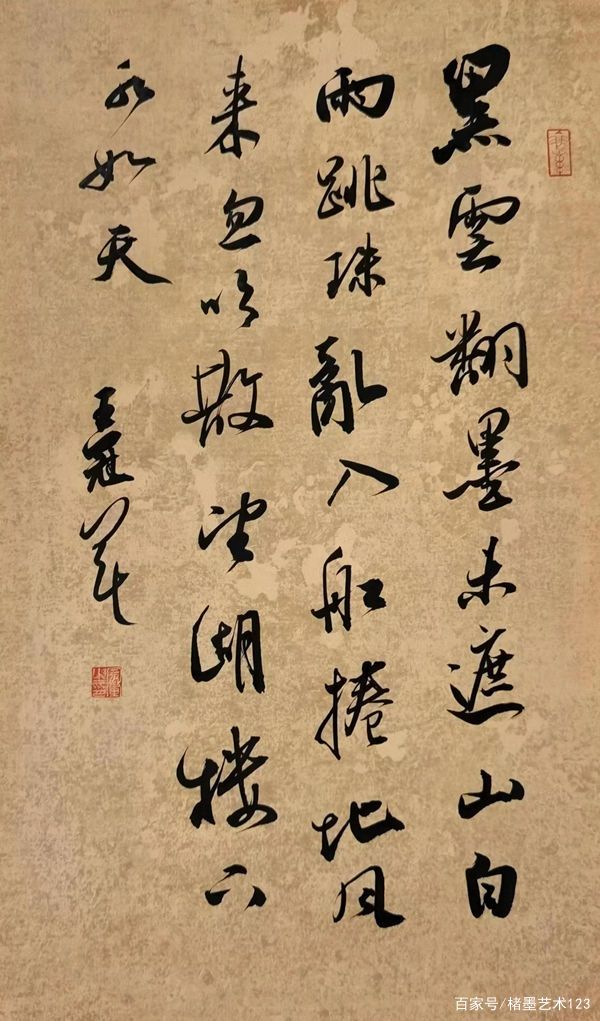 黑雲翻墨未遮山白
雨跳珠亂入船捲地風
来忽吹散望湖樓下
水如天
王冠
百家号/楮墨艺术123